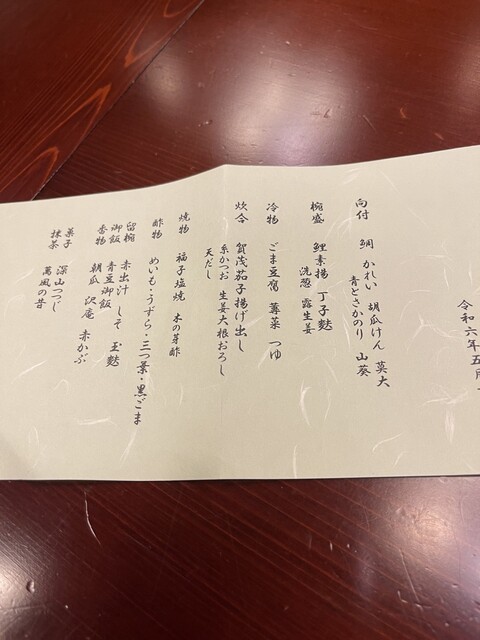 令和六年五月
向付 鯛 かれい 胡瓜けん 莫大
青とさかのり 山葵
椀盛 鯉素揚 丁子麩
洗葱 露生姜
冷物 ごま豆腐 蓴菜 つゆ
炊合 賀茂茄子揚げ出し
糸かつお 生姜大根おろし
天だし
焼物 福子塩焼 木の芽酢
酢物 めいも・うずら・三つ葉・黒ごま
留椀 赤出汁 しそ 玉麩
御飯 青豆御飯
香物 胡瓜 沢庵 赤かぶ
菓子 深山つつじ
抹茶 萬風の昔